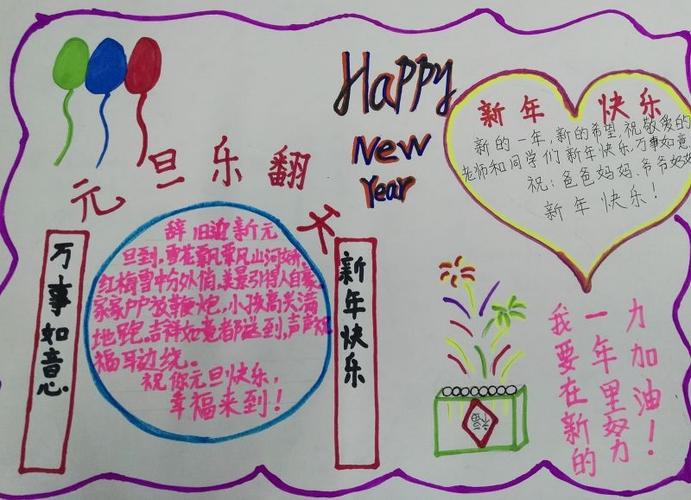 Happy
New
Year
元旦乐翻天
万事如意
辞旧迎新元
旦到,雪花飘飘山河娇
红梅雪中分外俏,美景引得人自豪
家家户户放鞭炮,小孩高兴满
地跑.吉祥如意都送到,声声祝
福耳边绕。
祝你元旦快乐,
幸福来到!
新年快乐
新年快乐
新的一年,新的希望,祝敬爱的
老师和同学们新年快乐,万事如意
祝:爸爸妈妈.爷爷奶奶
新年快乐!
福
我要在新的
一年里努力
力加油!